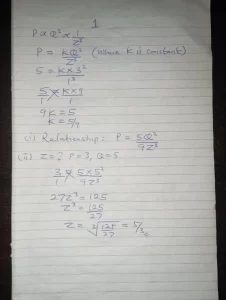 1
P ∝ Q² ∝ 1/Z³
P = KQ²/Z³ (where K is constant)
5 = K×3²/1³
5/1 = K×9/1
9K = 5
K = 5/9
(i) Relationship: P = 5Q²/9Z³
(ii) Z = ? P = 3, Q = 5
3/1 = 5×5²/9Z³
27Z³ = 125
Z³ = 125/27
Z = ∛125/27 = 5/3